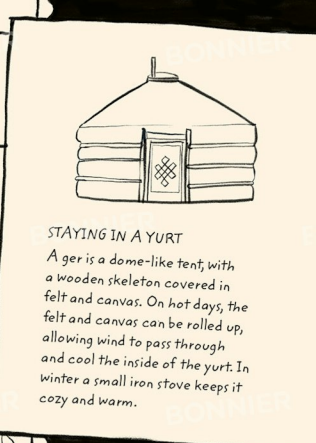 STAYING IN A YURT
A ger is a dome-like tent, with
a wooden skeleton covered in
felt and canvas. On hot days, the
felt and canvas can be rolled up,
allowing wind to pass through
and cool the inside of the yurt. In
winter a small iron stove keeps it
cozy and warm.
BONNIER
BONNIER